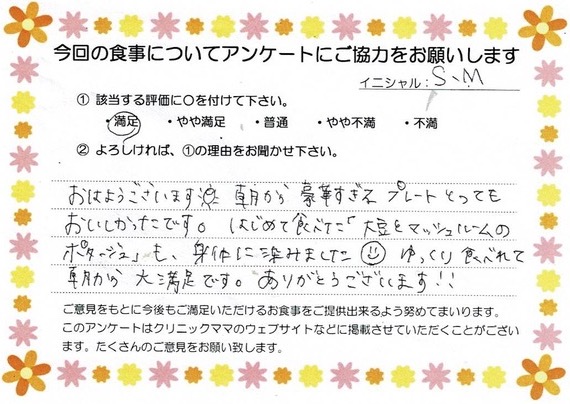 今回の食事についてアンケートにご協力をお願いします
イニシャル: S、M
① 該当する評価に○を付けて下さい。
・満足 ・やや満足 ・普通 ・やや不満 ・不満
② よろしければ、①の理由をお聞かせ下さい。
おはようございます 朝から 豪華すぎる プレート とっても
おいしかったです。 はじめて食べた「大豆とマッシュルームの
ポタージュ」も、身体に染みました ゆっくり食べれて
朝から 大満足です。ありがとうございます!!
ご意見をもとに今後もご満足いただけるお食事をご提供出来るよう努めてまいります。
このアンケートはクリニックママのウェブサイトなどに掲載させていただくことがござい
ます。たくさんのご意見をお願い致します。